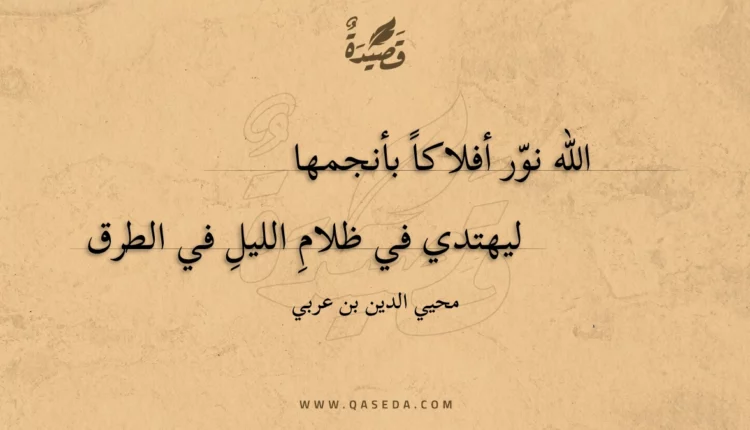 قَصِيْدَةٌ
الله نوّر أفلاكاً بأنجمها
ليهتدي في ظلامِ الليلِ في الطرق
محيي الدين بن عربي
WWW.QASEDA.COM